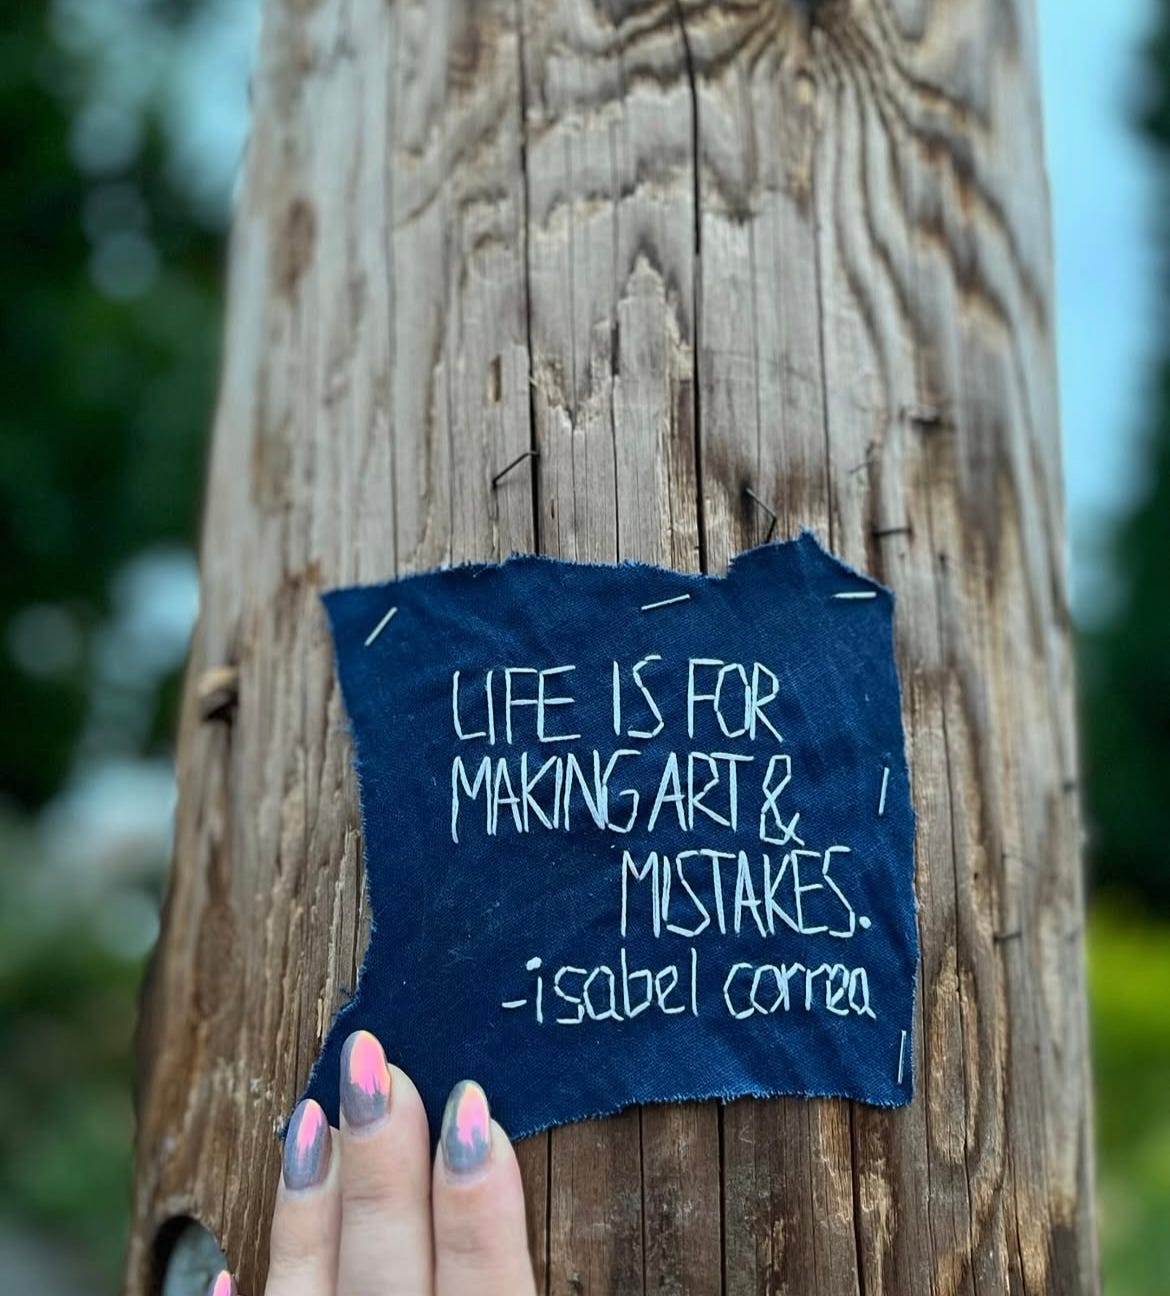 LIFE IS FOR
MAKING ART &
MISTAKES.
-isabel correa